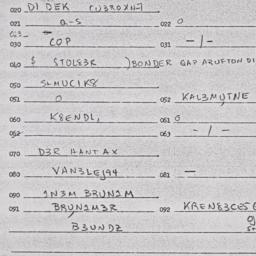 020 DI DEK CU3ROXN7
021 a-s 022 0
030 COP 031 -1-
040 $ STOL83R )BONDER GAP ARUFTON DI
050 SLMUCIK8
051 0 052 KAL3MUTNE
060 K8ENDL, 061 0
062 063 - 1 -
070 D3R HANTAX
080 VAN3LEJ94 081 —
090 1N3M BRUN1M
091 BRUN1M3R 092 KREN83CES
B3UNDZ